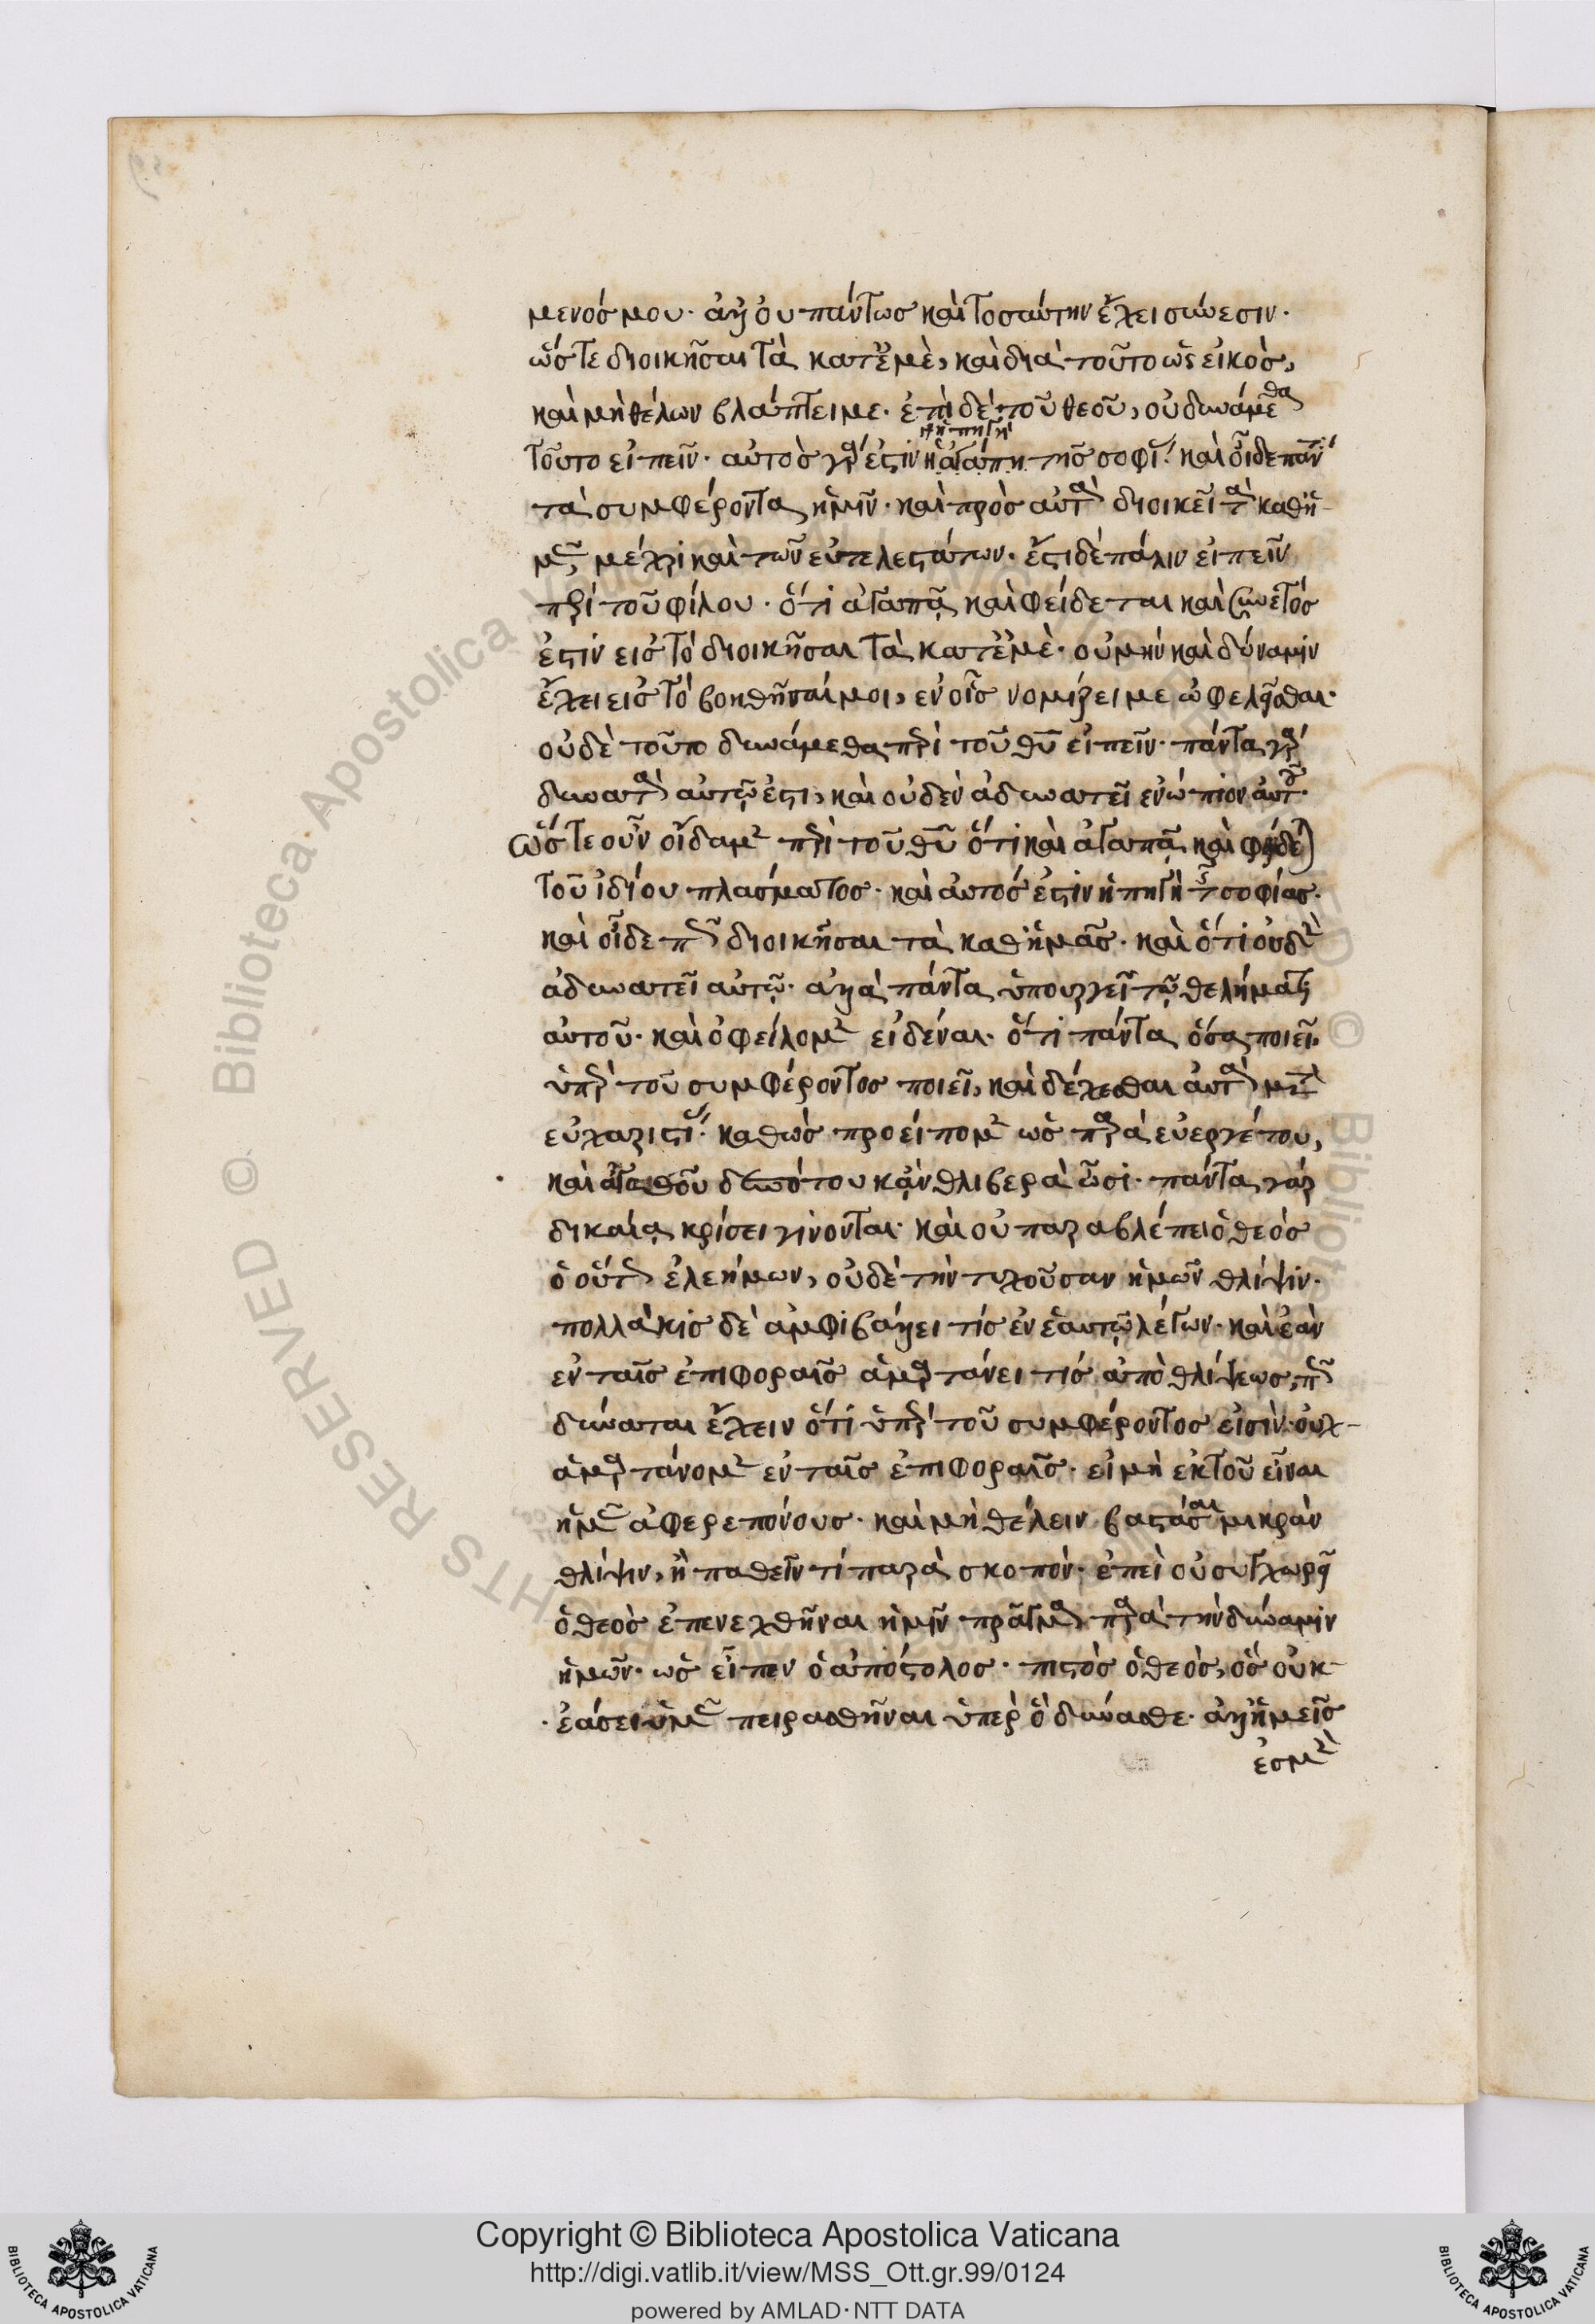 μενός μου· ἀλλ' οὐ πάντως καὶ τοσαύτην ἔχει σύνεσιν·
ὥστε διοικῆσαι τὰ κατ' ἐμὲ, καὶ διὰ τοῦτο ὡς εἰκὸς,
καὶ μὴ θέλων βλάπτει με· ἐπὶ δὲ τοῦ θεοῦ, οὐ δυνάμεθα
τοῦτο εἰπεῖν· αὐτὸς γάρ ἐστιν ἡ ἀγάπη τῆς σοφίας· καὶ οἶδε πάν
ἡ πηγὴ
τὰ συμφέροντα ἡμῖν· καὶ πρὸς αὐτὰ διοικεῖ τὰ καθ' ἡ-
μᾶς μέχρι καὶ τῶν εὐτελεστάτων· ἔστι δὲ πάλιν εἰπεῖν
περὶ τοῦ φίλου· ὅτι ἀγαπᾷ καὶ φείδεται καὶ συνετός
ἐστιν εἰς τὸ διοικῆσαι τὰ κατ' ἐμὲ· οὐ μὴν καὶ δύναμιν
ἔχει εἰς τὸ βοηθῆσαί μοι, ἐν οἷς νομίζει με ὠφελῆσθαι·
οὐδὲ τοῦτο δυνάμεθα περὶ τοῦ θῦ εἰπεῖν· πάντα γὰρ
δυνατὰ αὐτῷ ἐστι, καὶ οὐδὲν ἀδυνατεῖ ἐνώπιον αὐτοῦ·
ὥστε οὖν οἴδαμεν περὶ τοῦ θῦ ὅτι καὶ ἀγαπᾷ καὶ φείδεται
τοῦ ἰδίου πλάσματος· καὶ αὐτός ἐστιν ἡ πηγὴ τῆς σοφίας·
καὶ οἶδε πῶς διοικῆσαι τὰ καθ' ἡμᾶς· καὶ ὅτι οὐδὲν
ἀδυνατεῖ αὐτῷ· ἀλλὰ πάντα ὑπουργεῖ τῷ θελήματι
αὐτοῦ· καὶ ὀφείλομεν εἰδέναι· ὅτι πάντα ὅσα ποιεῖ,
ὑπὲρ τοῦ συμφέροντος ποιεῖ, καὶ δέχεσθαι αὐτὰ μετὰ
εὐχαριστίας· καθὼς προείπομεν ὡς παρὰ εὐεργέτου,
καὶ ἀγαθοῦ δεσπότου κἂν θλιβερὰ ὦσι· πάντα γὰρ
δικαίᾳ κρίσει γίνονται· καὶ οὐ παραβλέπει ὁ θεὸς
ὁ οὕτως ἐλεήμων, οὐδὲ τὴν τυχοῦσαν ἡμῶν θλίψιν·
πολλάκις δὲ ἀμφιβάλλει τίς ἐν ἑαυτῷ λέγων· καὶ ἐὰν
ἐν ταῖς ἐπιφοραῖς ἁμαρτάνει τις ἀπὸ θλίψεως, πῶς
δύναται ἔχειν ὅτι ὑπὲρ τοῦ συμφέροντος εἰσίν· οὐχ-
ἁμαρτάνομεν ἐν ταῖς ἐπιφοραῖς· εἰ μὴ ἐκ τοῦ εἶναι
ἡμᾶς ἀφερεπόνους· καὶ μὴ θέλειν βαστάσαι μικρὰν
θλίψιν, ἢ παθεῖν τί παρὰ σκοπόν· ἐπεὶ οὐ συγχωρεῖ
ὁ θεὸς ἐπενεχθῆναι ἡμῖν πρᾶγμα παρὰ τὴν δύναμιν
ἡμῶν· ὡς εἶπεν ὁ ἀπόστολος· πιστὸς ὁ θεὸς, ὃς οὐκ-
ἐάσει ὑμᾶς πειρασθῆναι ὑπὲρ ὃ δύνασθε· ἀλλ' ἡμεῖς
ἐσμὲν
Copyright © Biblioteca Apostolica Vaticana
http://digi.vatlib.it/view/MSS_Ott.gr.99/0124
powered by AMLAD·NTT DATA